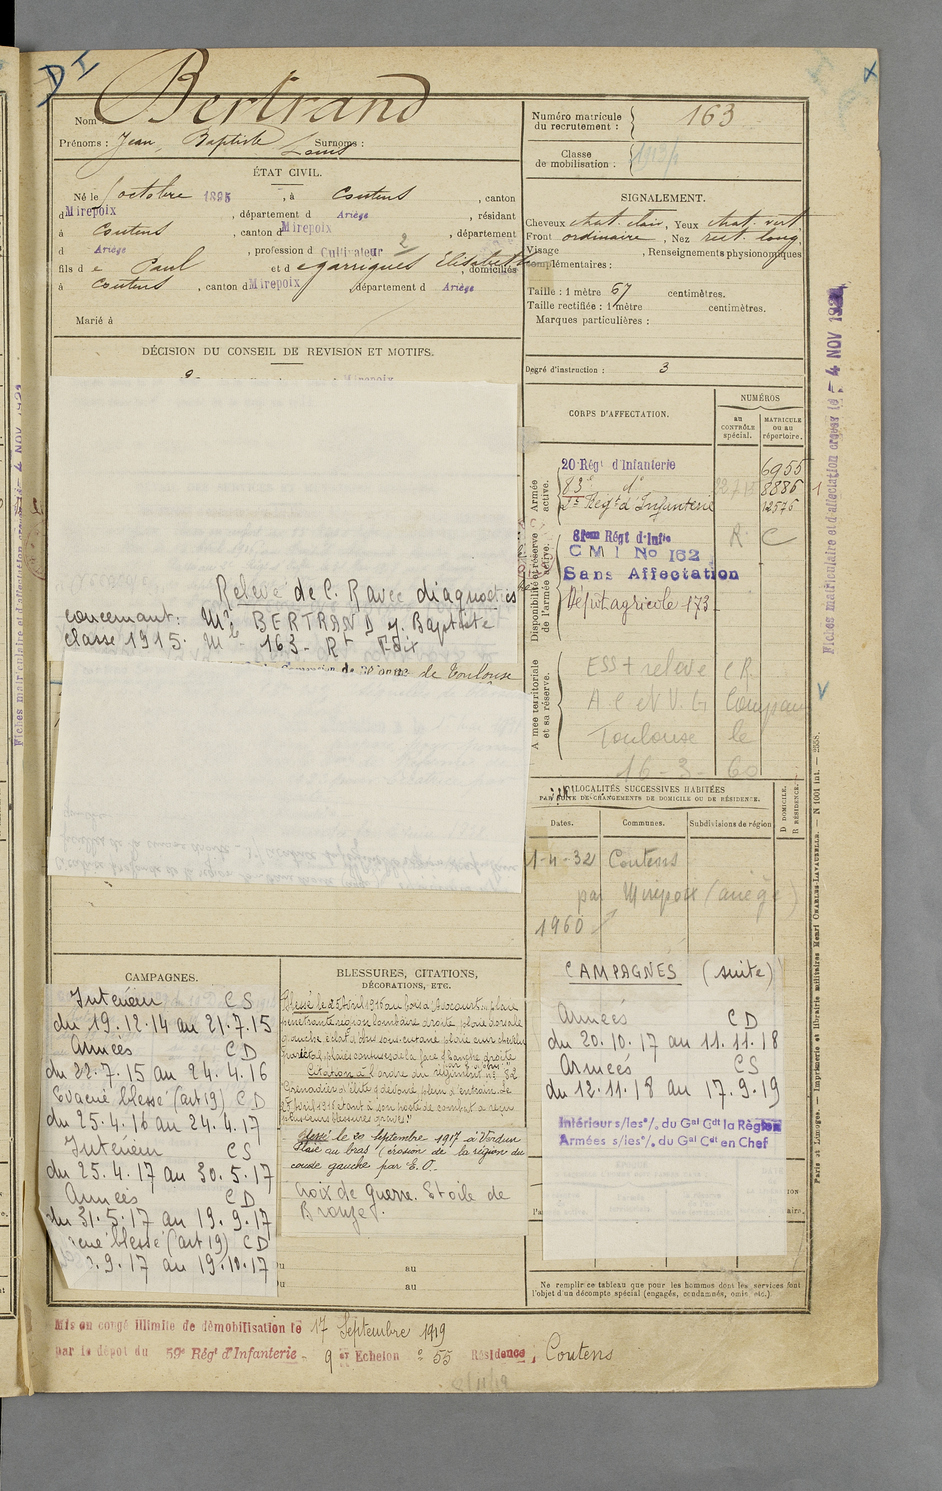 Bertrand
Nom :
Prénoms : Jean, Baptiste Surnoms :
Louis
ÉTAT CIVIL.
Né le octobre 1895, à Coutens, canton
d Mirepoix, département d Ariège, résidant
à Coutens, canton d Mirepoix, département
d Ariège, profession d Cultivateur 2
fils d e Paul et d e garrigues Elisabeth, domiciliés
à Coutens, canton d Mirepoix, département d Ariège
Marié à
DÉCISION DU CONSEIL DE REVISION ET MOTIFS.
Relevé de C. R avec diagnostics
concernant : Mr BERTRAND J. Baptiste
classe 1915. Mle - 163 - Rt Foix
de Toulouse
CAMPAGNES.
Intérieur CS
du 19.12.14 au 21.7.15
Armées CD
du 22.7.15 au 24.4.16
Evacué blessé (art 19) CD
du 25.4.16 au 24.4.17
Intérieur CS
du 25.4.17 au 30.5.17
Armées CD
du 31.5.17 au 19.9.17
blessé (art 19) CD
.9.17 au 19.10.17
BLESSURES, CITATIONS,
DÉCORATIONS, ETC.
Blessé le 25 Avril 1916 au bois d'Avocourt, plaie
pénétrante région lombaire droite, plaie dorsale
gauche éclat d'obus sous-cutané plaie cuir chevelu
pariétal, plaies contuses de la face f hanche droite
Citation à l'ordre du régiment no 52
Grenadier d'élite, dévoué plein d'entrain. Le
25 Avril 1916 étant à son poste de combat a reçu
plusieurs blessures graves."
Blessé le 20 septembre 1917 à Verdun
Plaie au bras érosion de la région du
coude gauche par E. O.
Croix de guerre. Etoile de
Bronze.
au
au
Numéro matricule
du recrutement : 163
Classe
de mobilisation :
SIGNALEMENT.
Cheveux chat. clair, Yeux chat. vert
Front ordinaire, Nez rect. long.
Visage , Renseignements physionomiques
complémentaires :
Taille : 1 mètre 67 centimètres.
Taille rectifiée : 1 mètre centimètres.
Marques particulières :
Degré d'instruction : 3
CORPS D'AFFECTATION.
NUMÉROS
au CONTRÔLE spécial.
MATRICULE ou au répertoire.
Armée active.
20e Régt d'Infanterie 6955
83e do 8886
Régt d'Infanterie 12576
Disponibilité et réserve de l'armée active.
Régt d'Infie R C
CMI No 162
Sans Affectation
Dépôt agricole 173
Armée territoriale et sa réserve.
ESS + relevé CR
A C et V. G Compan
Toulouse le
16-3-60
LOCALITÉS SUCCESSIVES HABITÉES
PAR SUITE DE CHANGEMENTS DE DOMICILE OU DE RÉSIDENCE.
Dates. Communes. Subdivisions de région
D DOMICILE. R RÉSIDENCE.
1-4-32 Coutens
par Mirepoix (ariège)
1960
CAMPAGNES (suite)
Armées CD
du 20.10.17 au 11.11.18
Armées CS
du 12.11.18 au 17.9.19
Intérieur s/les o/. du Gal Cdt la Région
Armées s/les o/. du Gal Cdt en Chef
Ne remplir ce tableau que pour les hommes dont les services font
l'objet d'un décompte spécial (engagés, condamnés, omis, etc.)
Mis en congé illimité de démobilisation le 17 Septembre 1919
par le dépôt du 59e Régt d'Infanterie - 9 Echelon no 55 Résidence, Coutens
Fiches matriculaire et d'affectation créées le 4 NOV
Paris et Limoges. — Imprimerie et librairie militaires Henri CHARLES-LAVAUZELLE. — N 1001 int. — 2558.